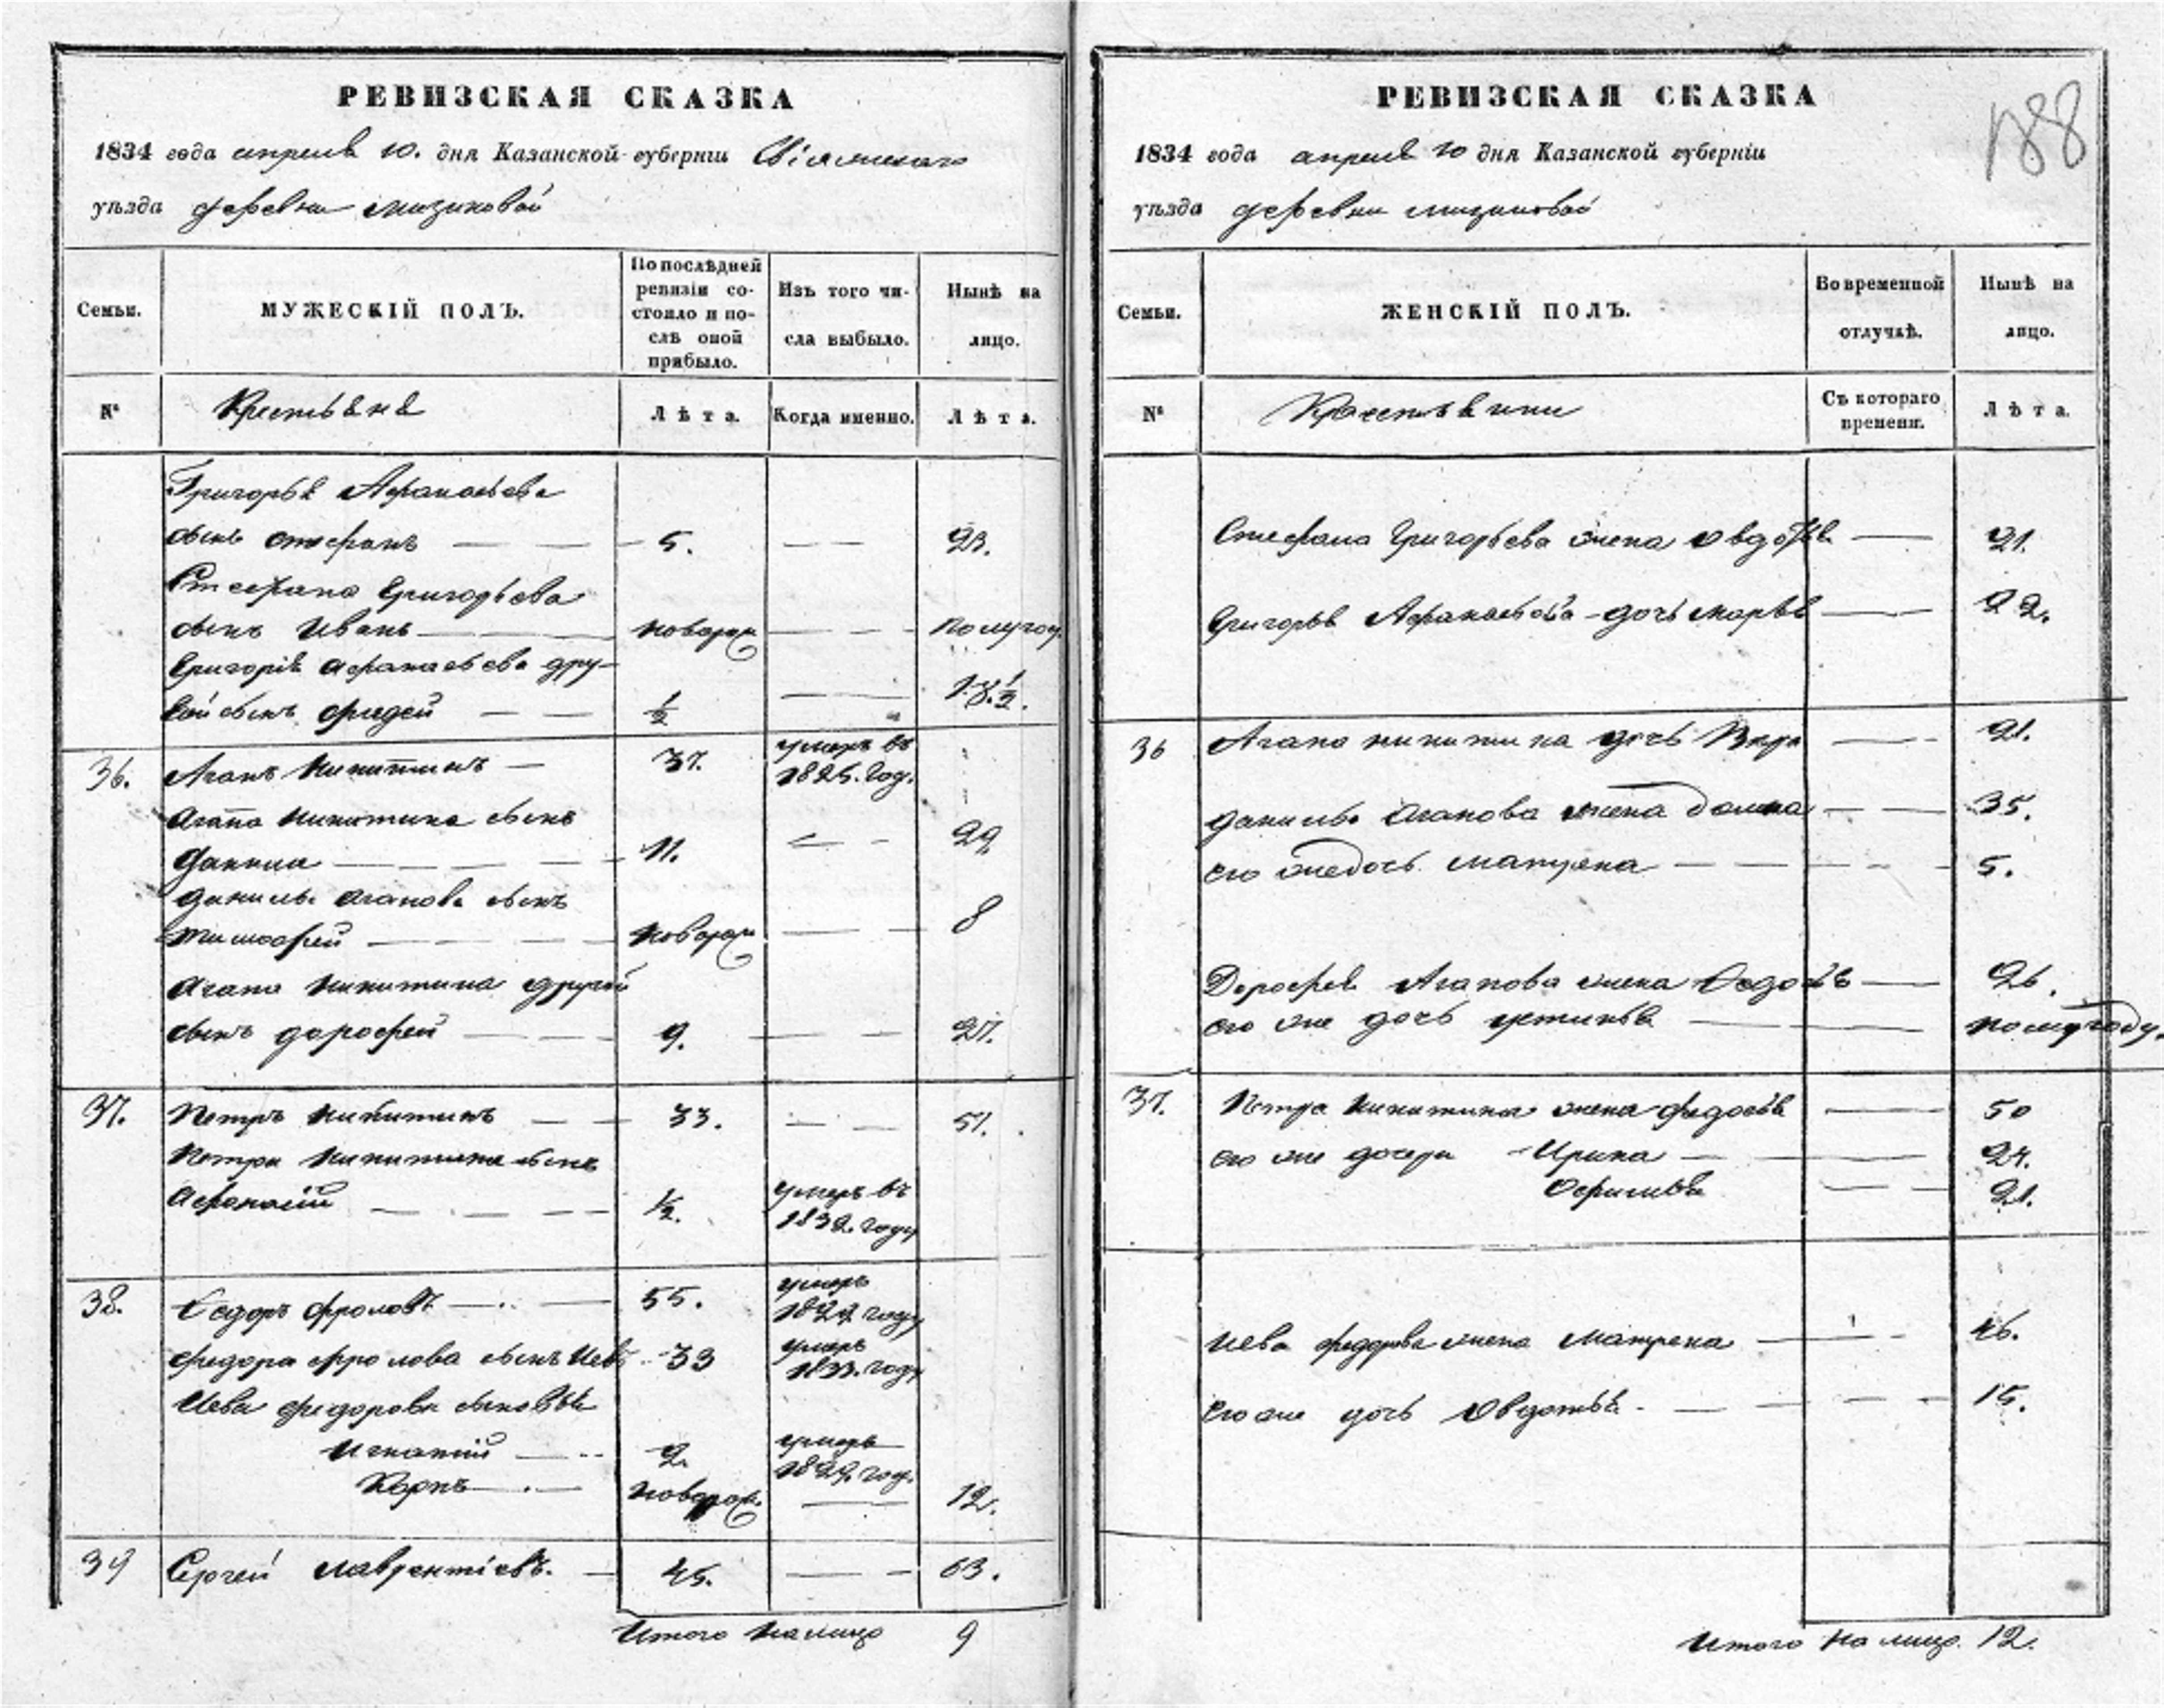 РЕВИЗСКАЯ СКАЗКА
1834 года апреля 10. дня Казанской губерніи Свіяжскаго
уѣзда деревни мизиновой
Семьи.
МУЖЕСКІЙ ПОЛЪ.
По послѣдней
ревизіи со-
стояло и по-
слѣ оной
прибыло.
Изъ того чи-
сла выбыло.
Нынѣ на
лицо.
№
Крестьяне
Лѣта.
Когда именно.
Лѣта.
Григорья Афанасьева
сынъ стефанъ 5. 23.
Стефана Григорьева
сынъ Иванъ новорож полугоду
Григорія афанасьева дру-
гой сынъ фадей 1/2 18 1/2.
36. Агапъ Никитинъ 37. умеръ въ
1825. год.
Агапа Никитина сынъ
данила 11. 29
данилы агапова сынъ
тимофей новорож 8
Агапа Никитина другой
сынъ дорофей 9. 27.
37. Петръ Никитинъ 33. 51.
Петра Никитина сынъ
афанасій 1/2. умеръ въ
1832. году
38. Федоръ фроловъ 55. умеръ
году
федора фролова сынъ Иевъ 33 умеръ
1833. году
Иева федорова сыновья
Игнатій 2. умеръ
год.
Карпъ новорож. 12.
39 Сергей лаврентіевъ. 45. 63.
Итого на лицо 9
188
РЕВИЗСКАЯ СКАЗКА
1834 года апреля 10 дня Казанской губерніи
уѣзда деревни мизиновой
Семьи.
ЖЕНСКІЙ ПОЛЪ.
Во временной
отлучкѣ.
Нынѣ на
лицо.
№
Крестьянки
Съ котораго
времени.
Лѣта.
Стефана Григорьева жена овдотья 21.
Григорья Афанасьева дочь марья 22.
36 Агапа никитина дочь 21.
данилы агапова жена 35.
его же дочь матрена 5.
Дорофея Агапова жена Федосья 26.
его же дочь устинья полугоду.
37. Петра Никитина жена федосья 50
его же дочери Ирина 24.
Офимья 21.
Иева федорова жена матрена 46.
его же дочь Овдотья. 15.
Итого на лицо. 12.